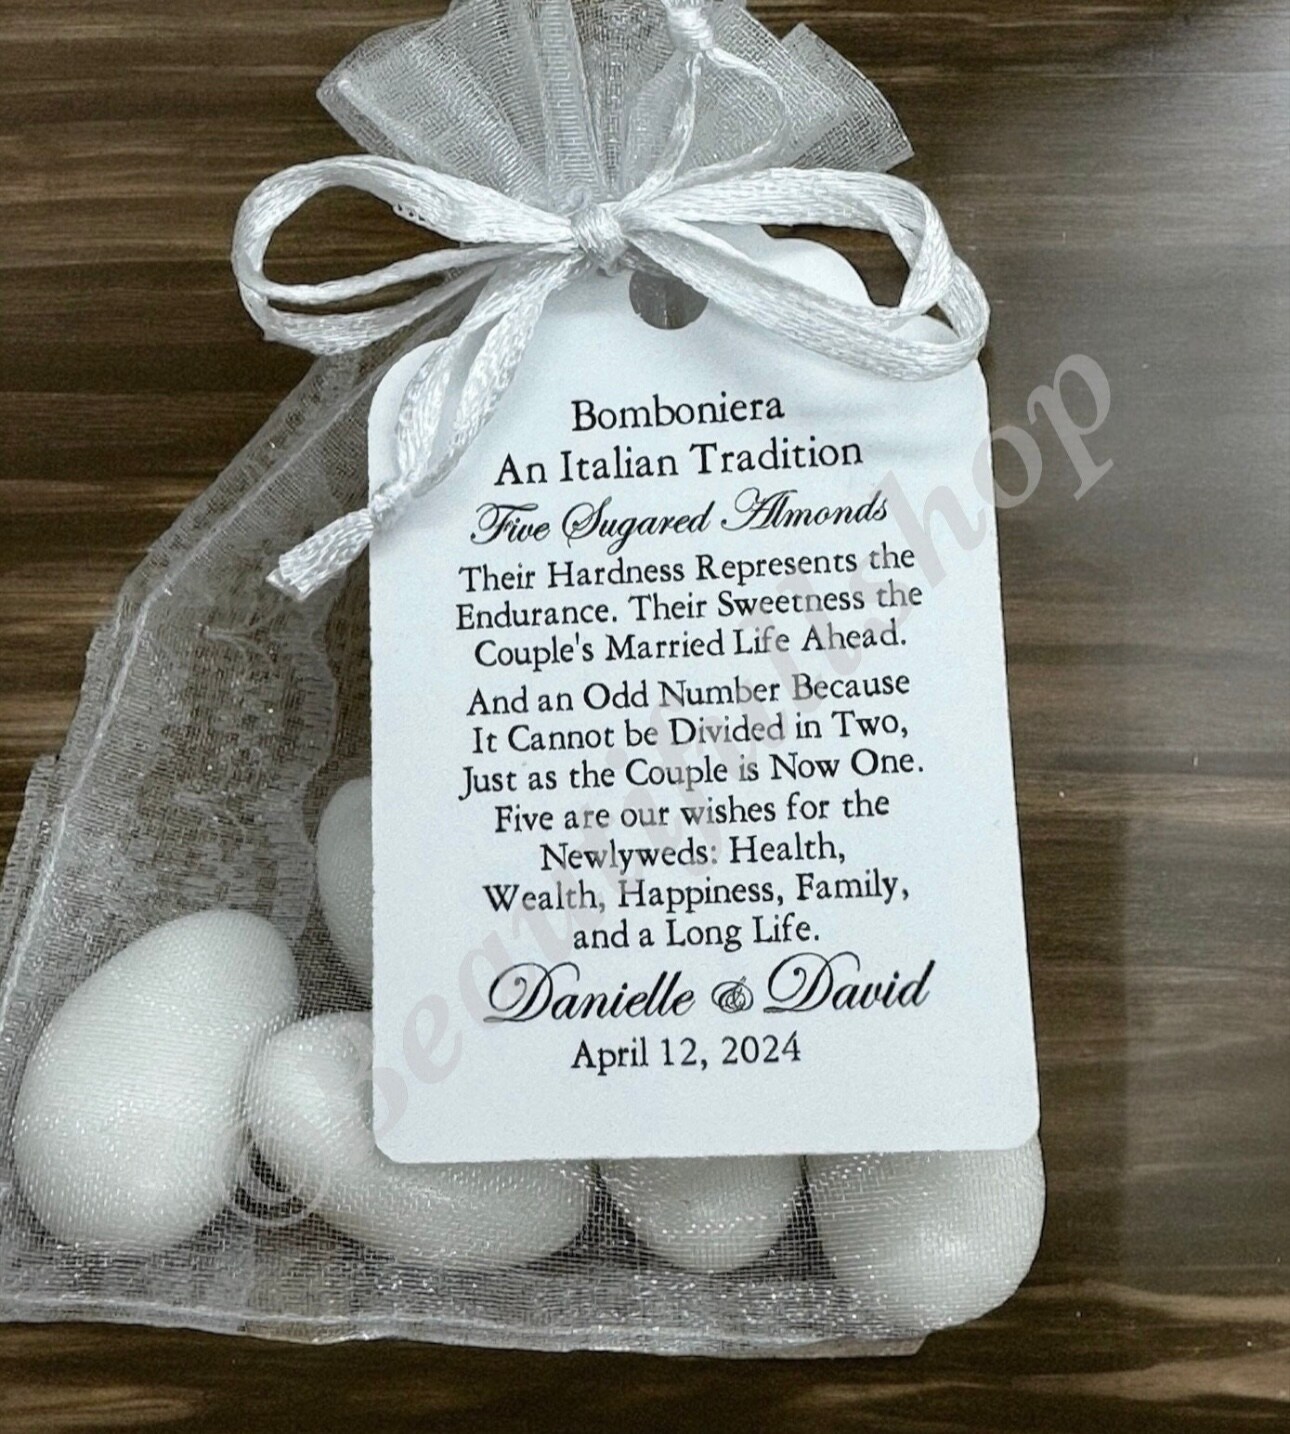 Bomboniera
An Italian Tradition
Five Sugared Almonds
Their Hardness Represents the
Endurance. Their Sweetness the
Couple's Married Life Ahead.
And an Odd Number Because
It Cannot be Divided in Two,
Just as the Couple is Now One.
Five are our wishes for the
Newlyweds: Health,
Wealth, Happiness, Family,
and a Long Life.
Danielle & David
April 12, 2024
Beautifullshop